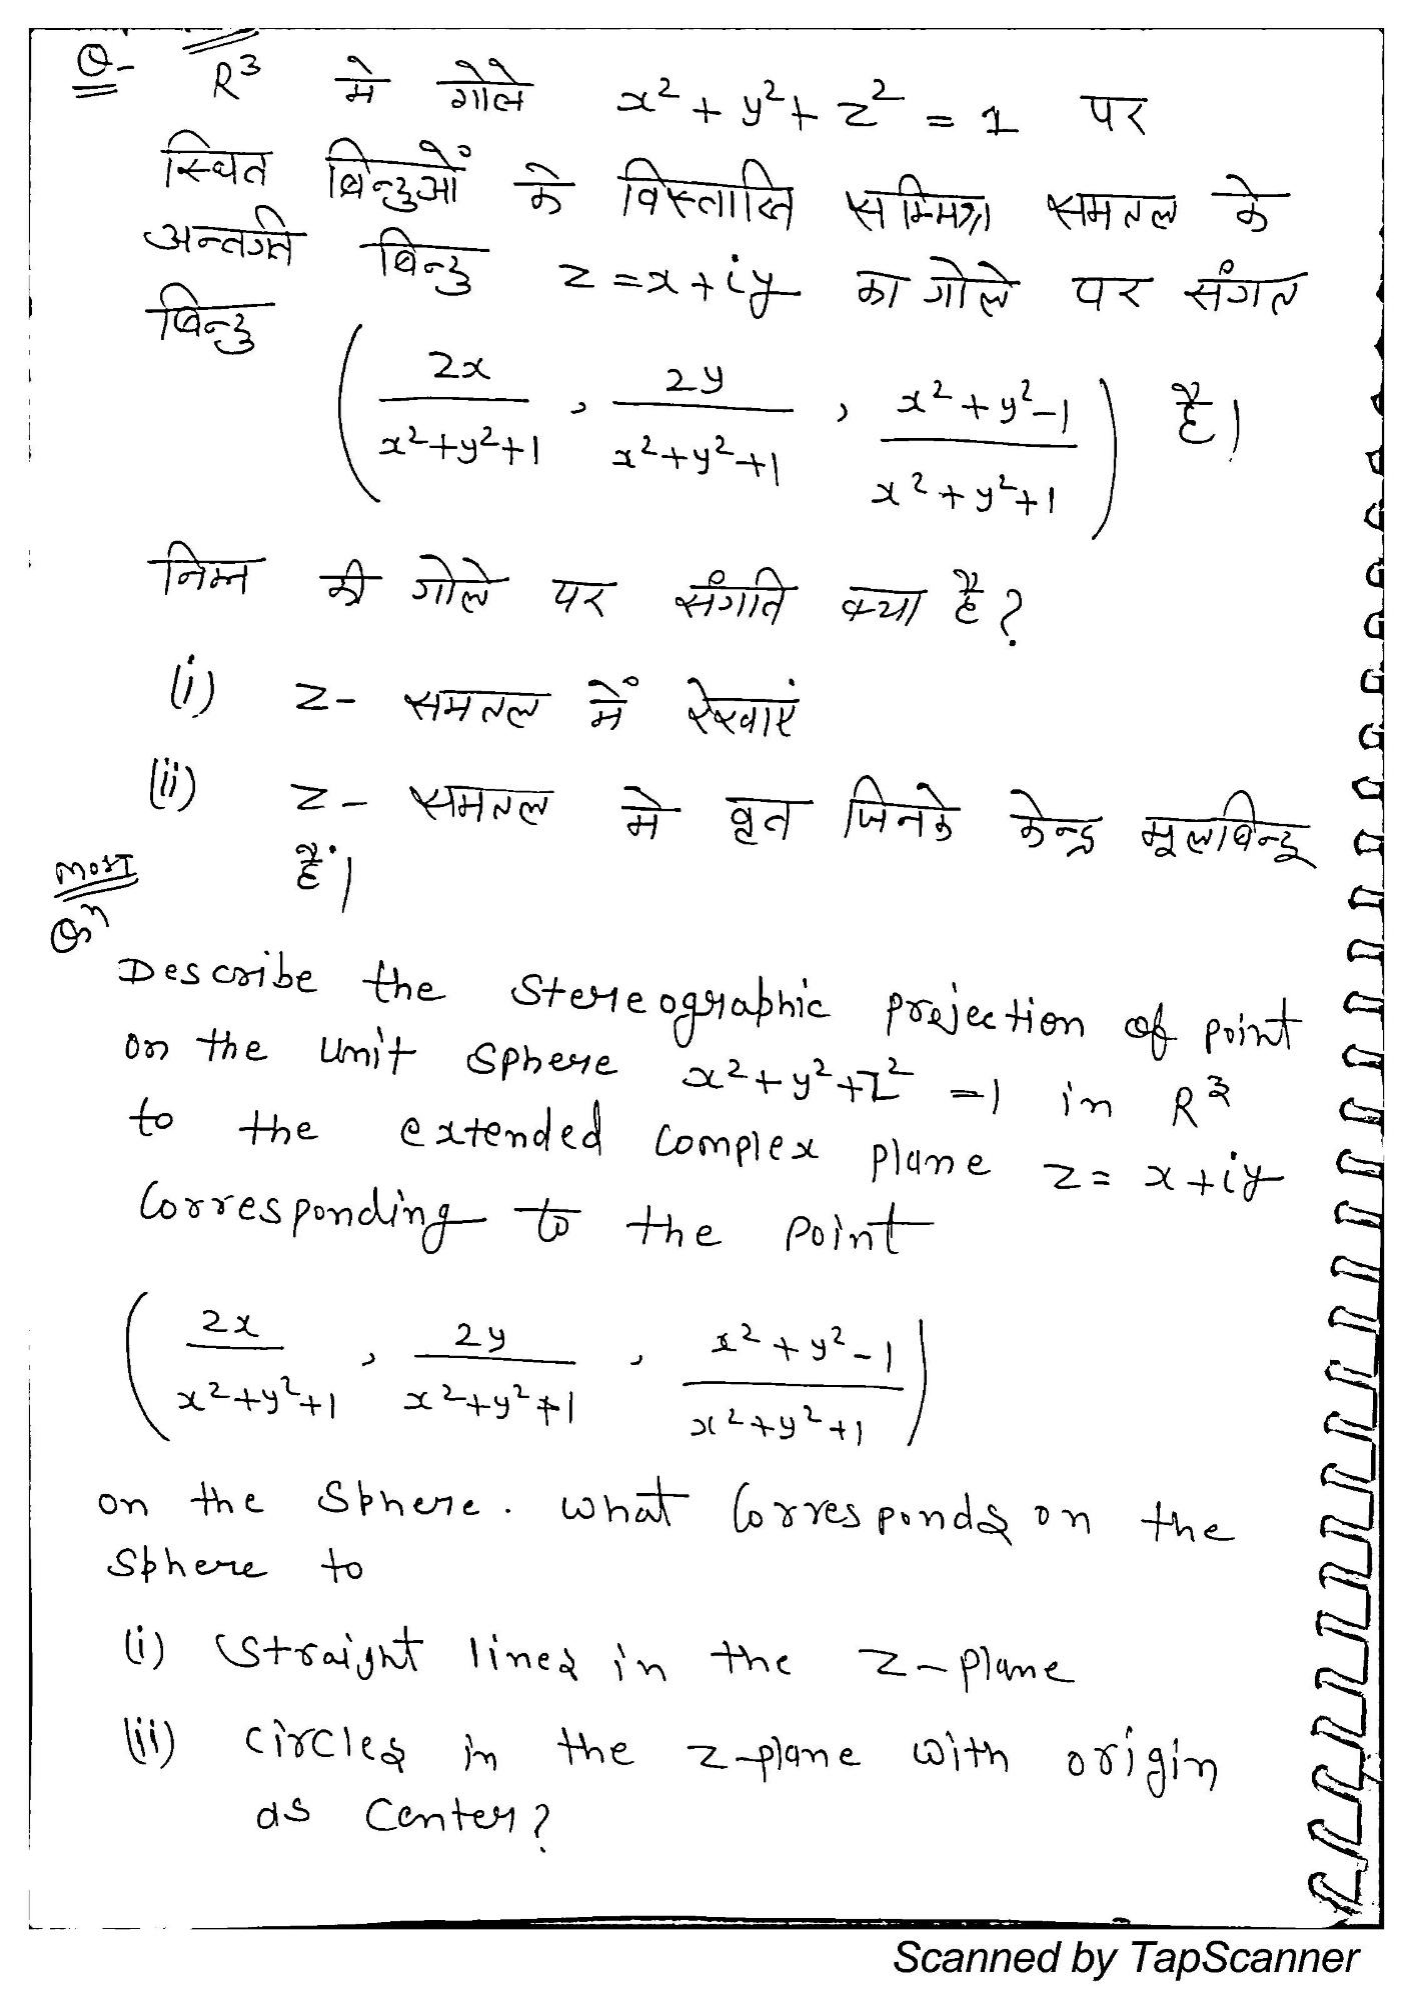 Q- R³ मे गोले x² + y² + z² = 1 पर
स्थित बिन्दुओं के विस्तारित सम्मिश्र समतल के
अन्तर्गत बिन्दु z = x + iy का गोले पर संगत
बिन्दु
( 2x/(x²+y²+1) , 2y/(x²+y²+1) , (x²+y²-1)/(x²+y²+1) ) है।
निम्न की गोले पर संगति क्या है?
(i) z- समतल में रेखाएं
(ii) z- समतल मे वृत जिनके केन्द्र मूलबिन्दू
हैं।
most
Qⁿ
Describe the Stereographic projection of point
on the unit Sphere x² + y² + z² = 1 in R³
to the extended complex plane z = x + iy
Corresponding to the point
( 2x/(x²+y²+1) , 2y/(x²+y²+1) , (x²+y²-1)/(x²+y²+1) )
on the Sphere. What Corresponds on the
Sphere to
(i) Straight lines in the z-plane
(ii) Circles in the z-plane with origin
as Center?
Scanned by TapScanner